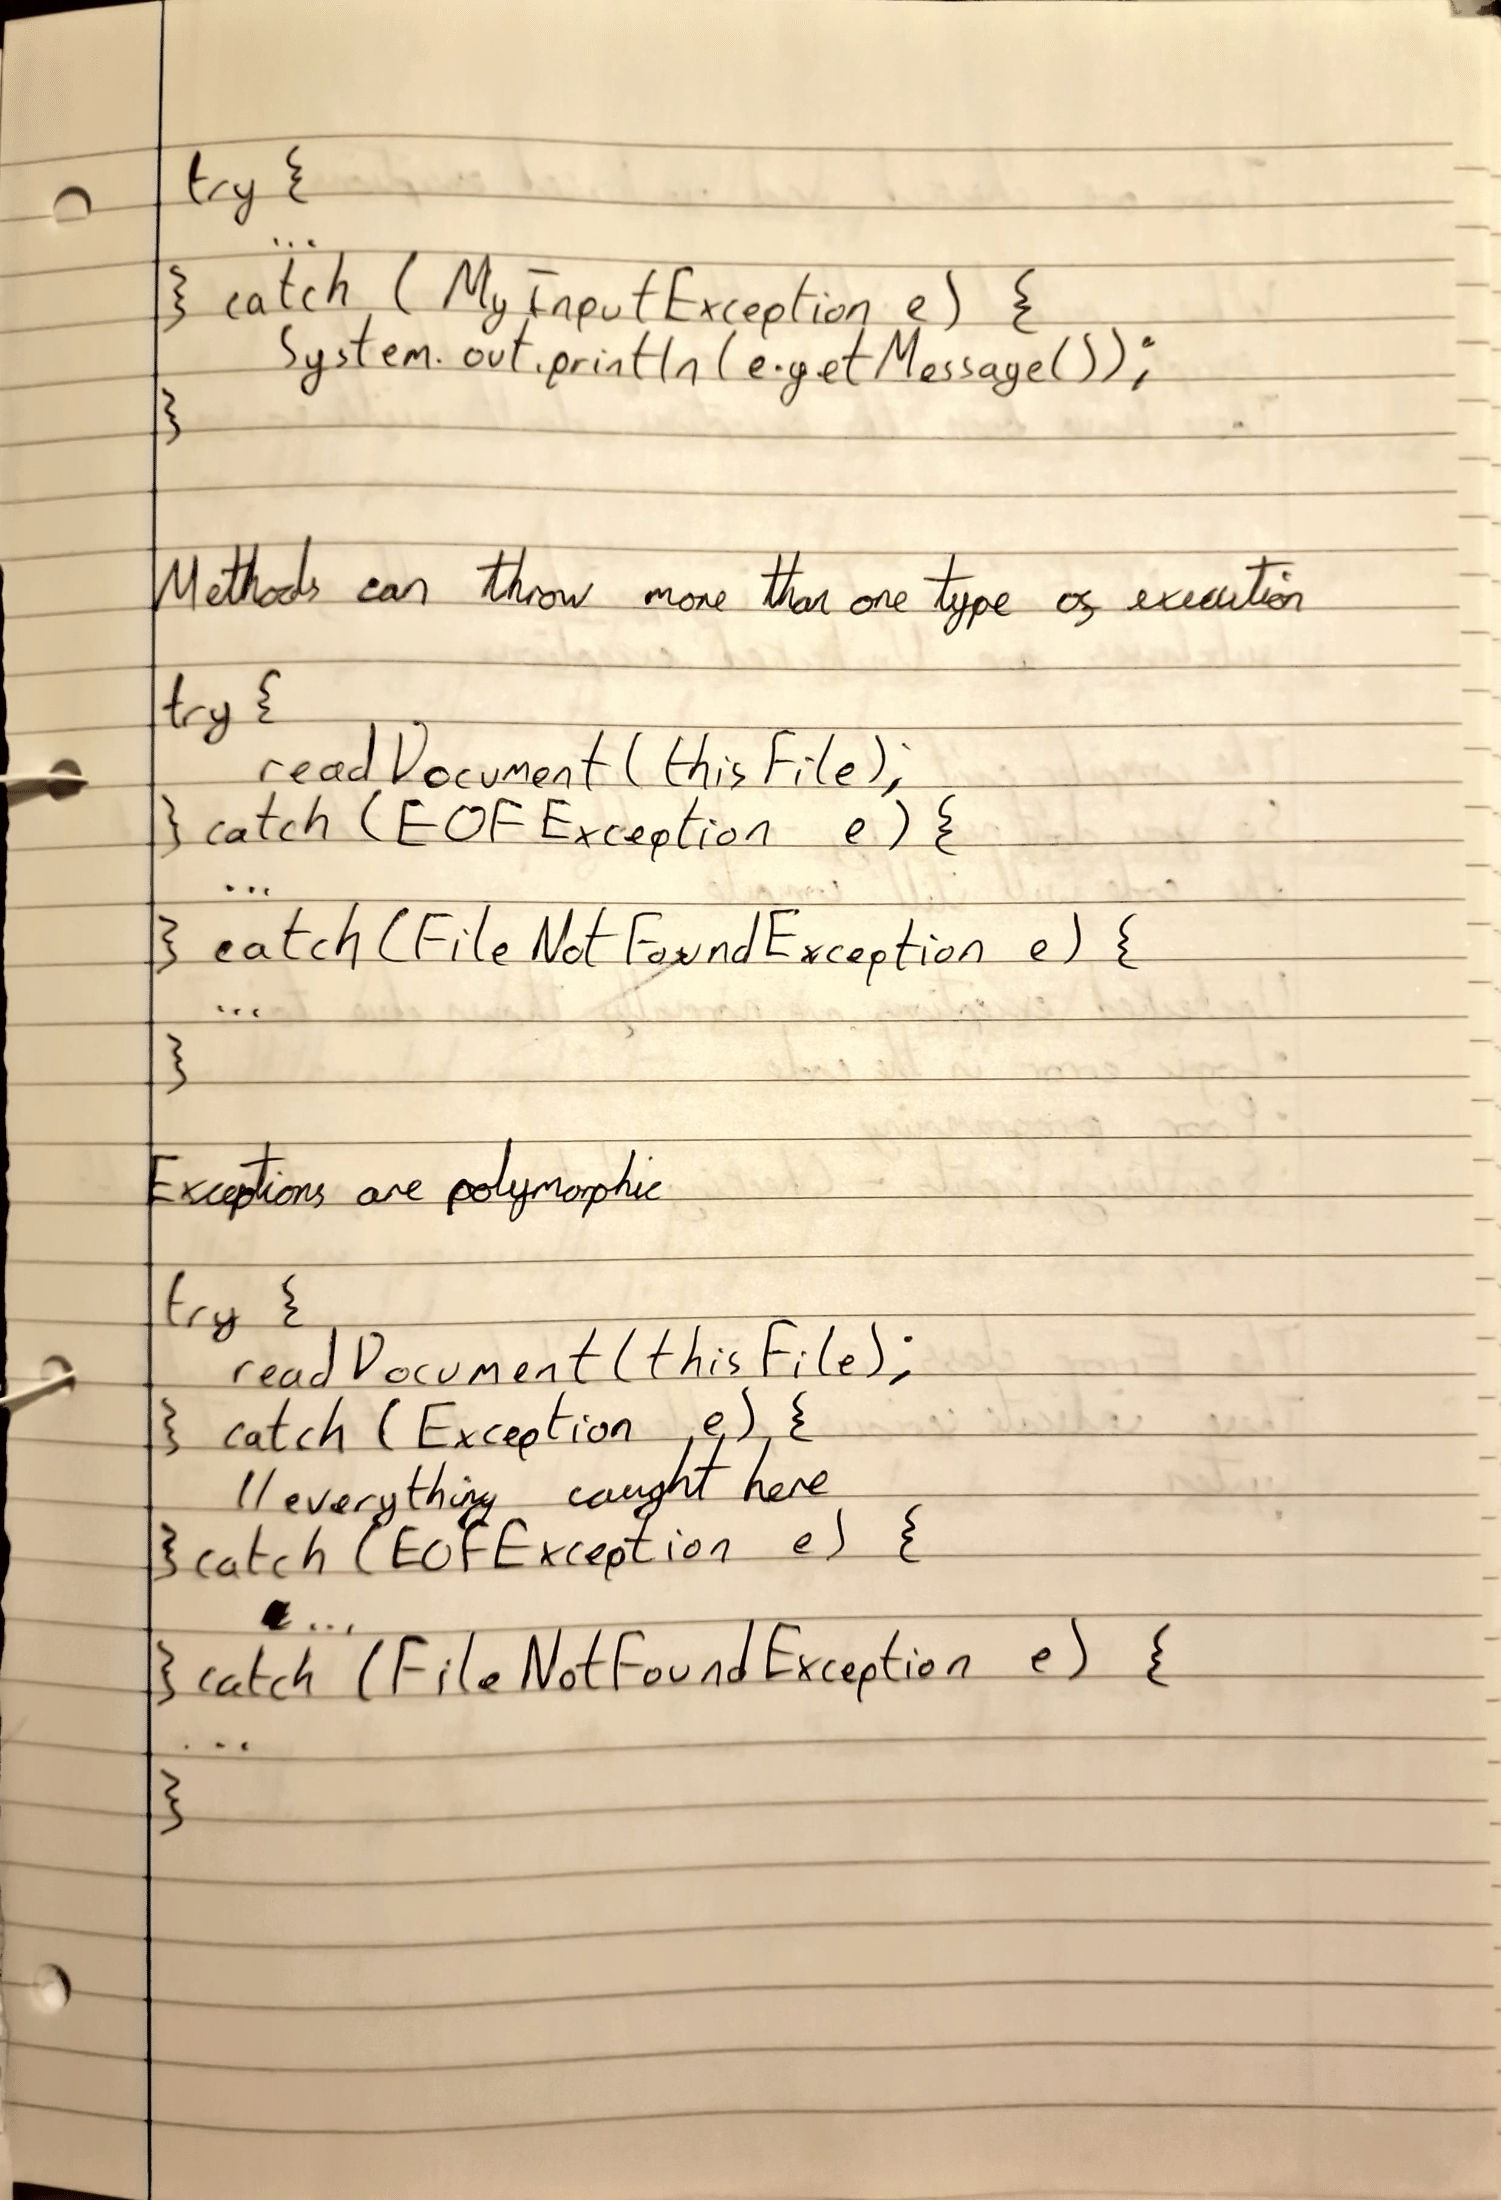 try {
...
} catch (MyInputException e) {
System.out.println(e.getMessage());
}
Methods can throw more than one type of execution
try {
readDocument(thisFile);
} catch (EOFException e) {
...
} catch (FileNotFoundException e) {
...
}
Exceptions are polymorphic
try {
readDocument(thisFile);
} catch (Exception e) {
//everything caught here
} catch (EOFException e) {
...
} catch (FileNotFoundException e) {
...
}